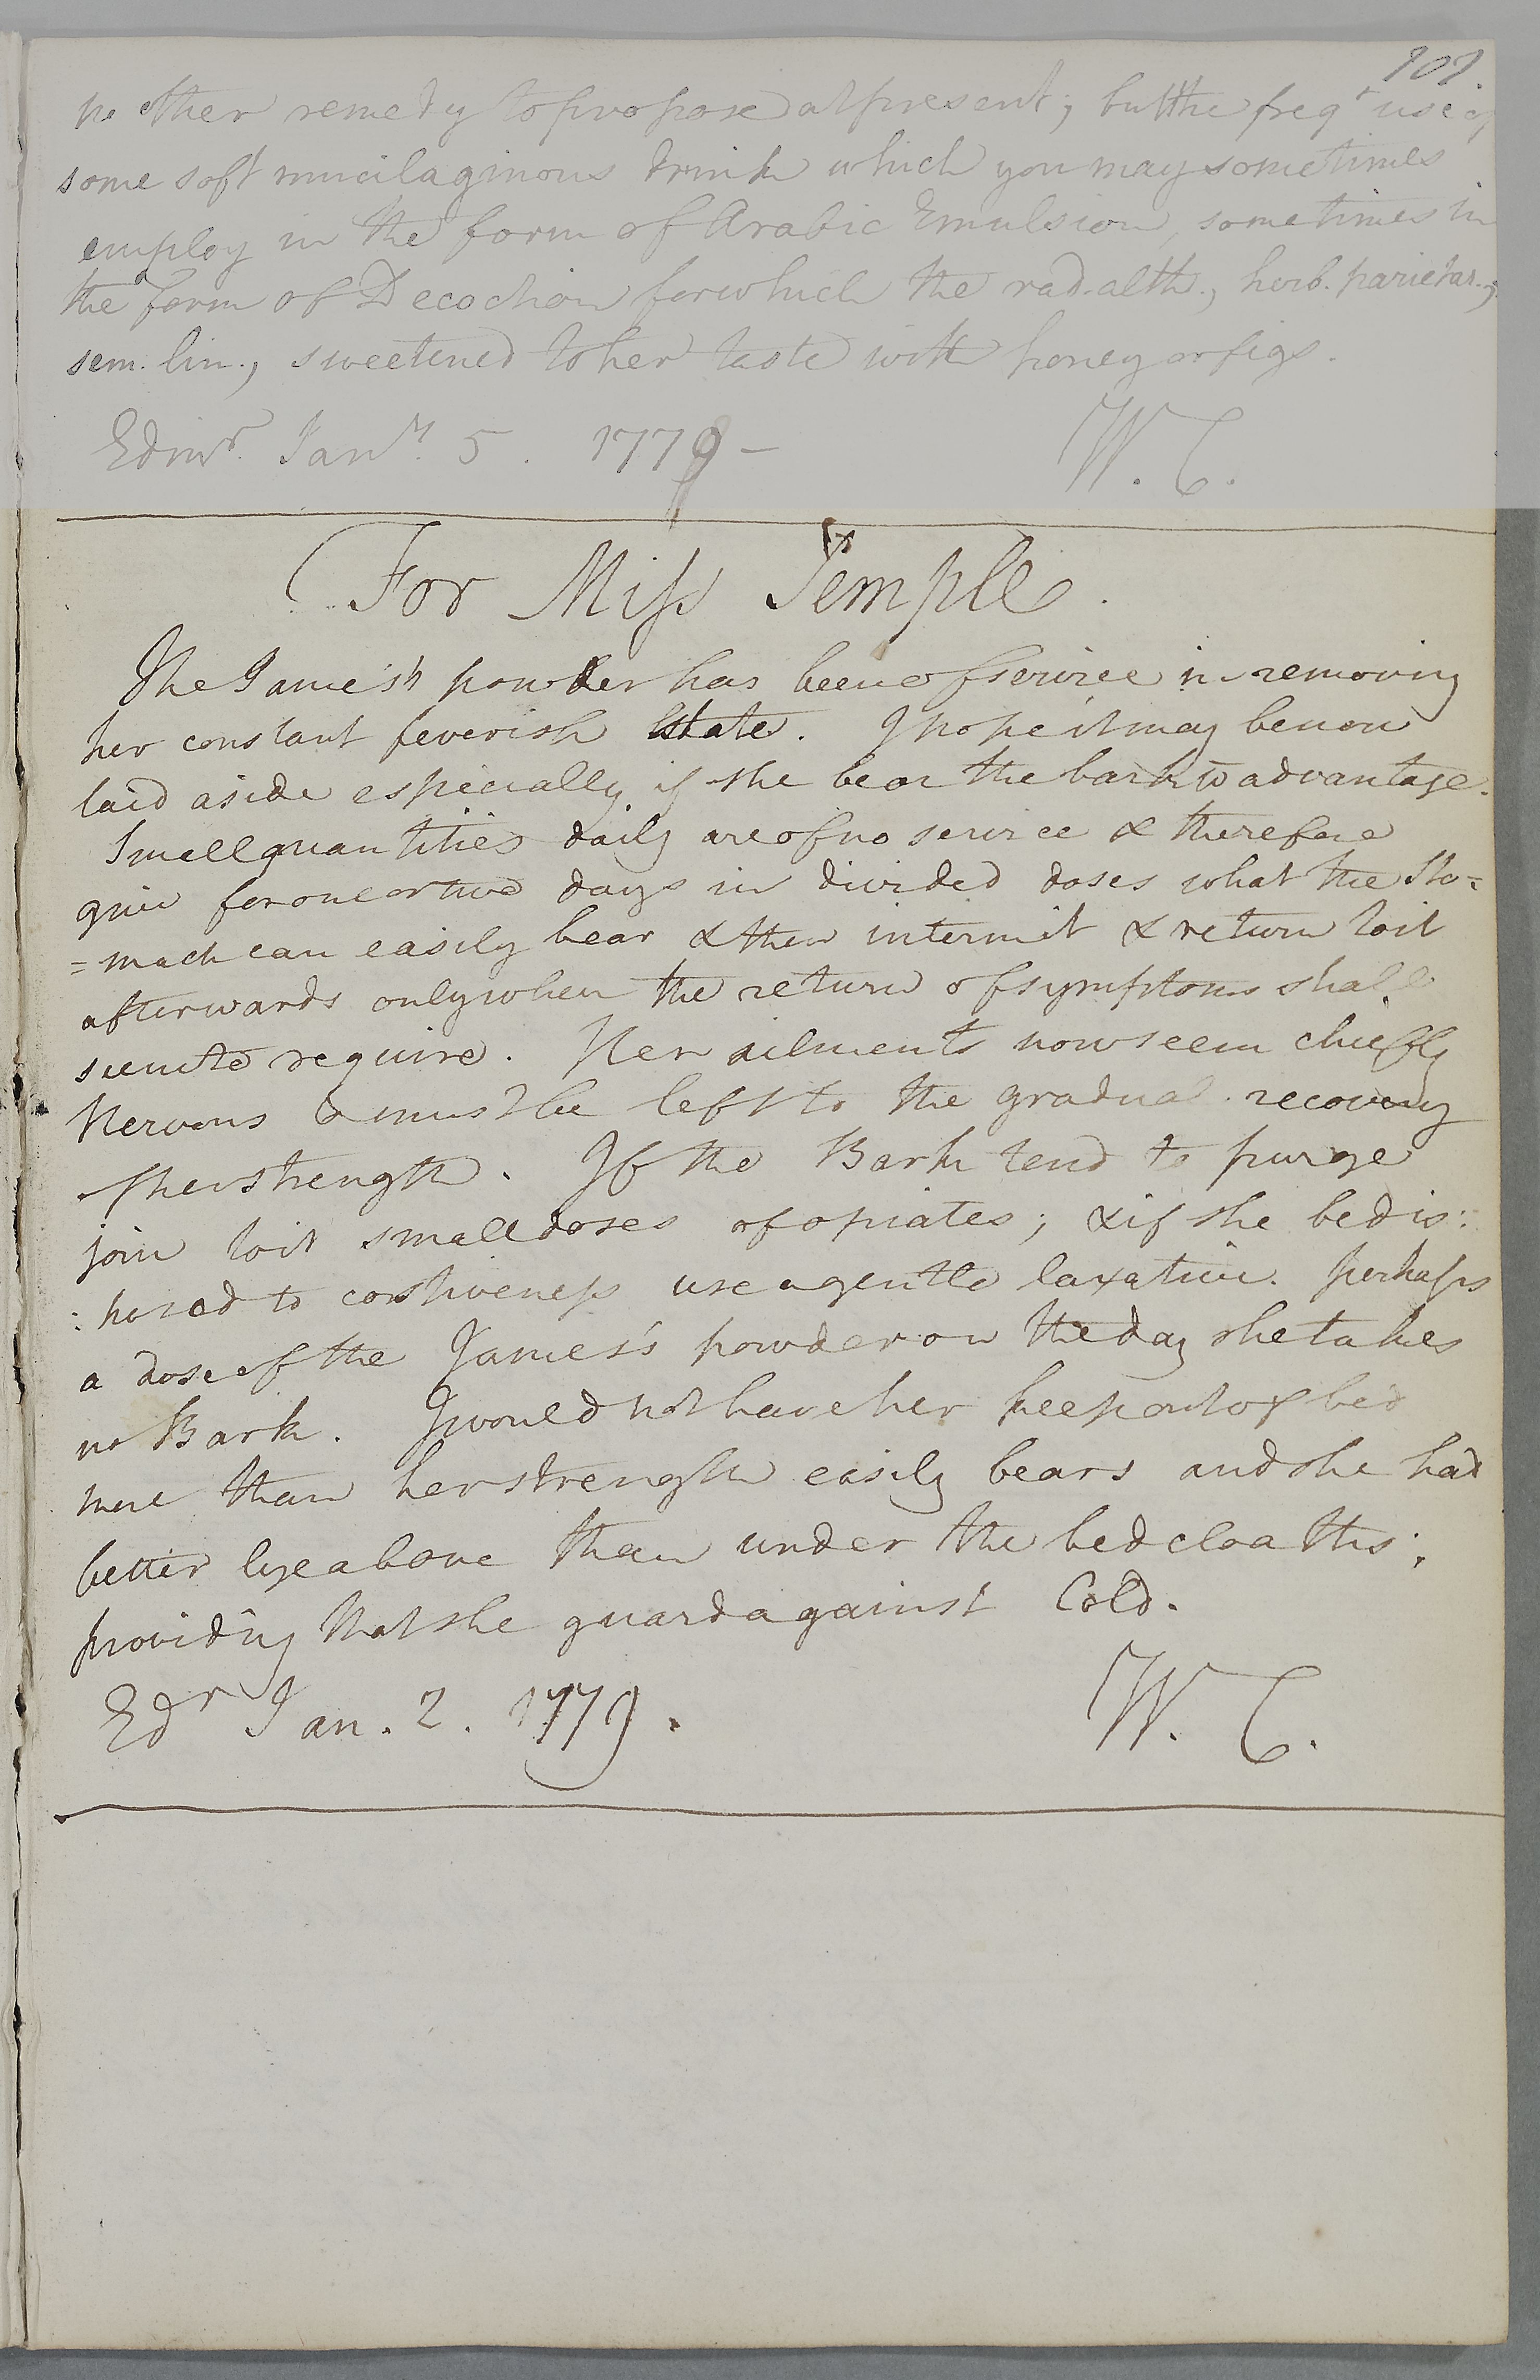 107.
no other remedy to propose at present; but the freqt use of
some soft mucilaginous drink which you may sometimes
employ in the form of Arabic Emulsion, sometimes in
the form of Decoction for which the rad. alth., herb. parietar.,
sem. lin., sweetened to her taste with honey or figs.
Edinr. Janry. 5. 1779 - W. C.
For Miss Temple.
The James's powder has been of service in removing
her constant feverish state. I hope it may be now
laid aside especially if she bear the bark to advantage.
Small quantities daily are of no service & therefore
give for one or two days in divided doses what the sto=
=mach can easily bear & then intermit & return to it
afterwards only when the return of symptoms shall
seem to require. Her ailments now seem chiefly
Nervous & must be left to the gradual recovery
of her strength. If the Bark tend to purge
join to it small doses of opiates; & if she be dis:
:posed to costiveness use a gentle laxative. perhaps
a dose of the James's powder on the day she takes
no Bark. I would not have her keep out of bed
more than her strength easily bears and she had
better lye above than under the bed cloaths;
providing that she guard against Cold.
Edr Jan. 2. 1779. W. C.